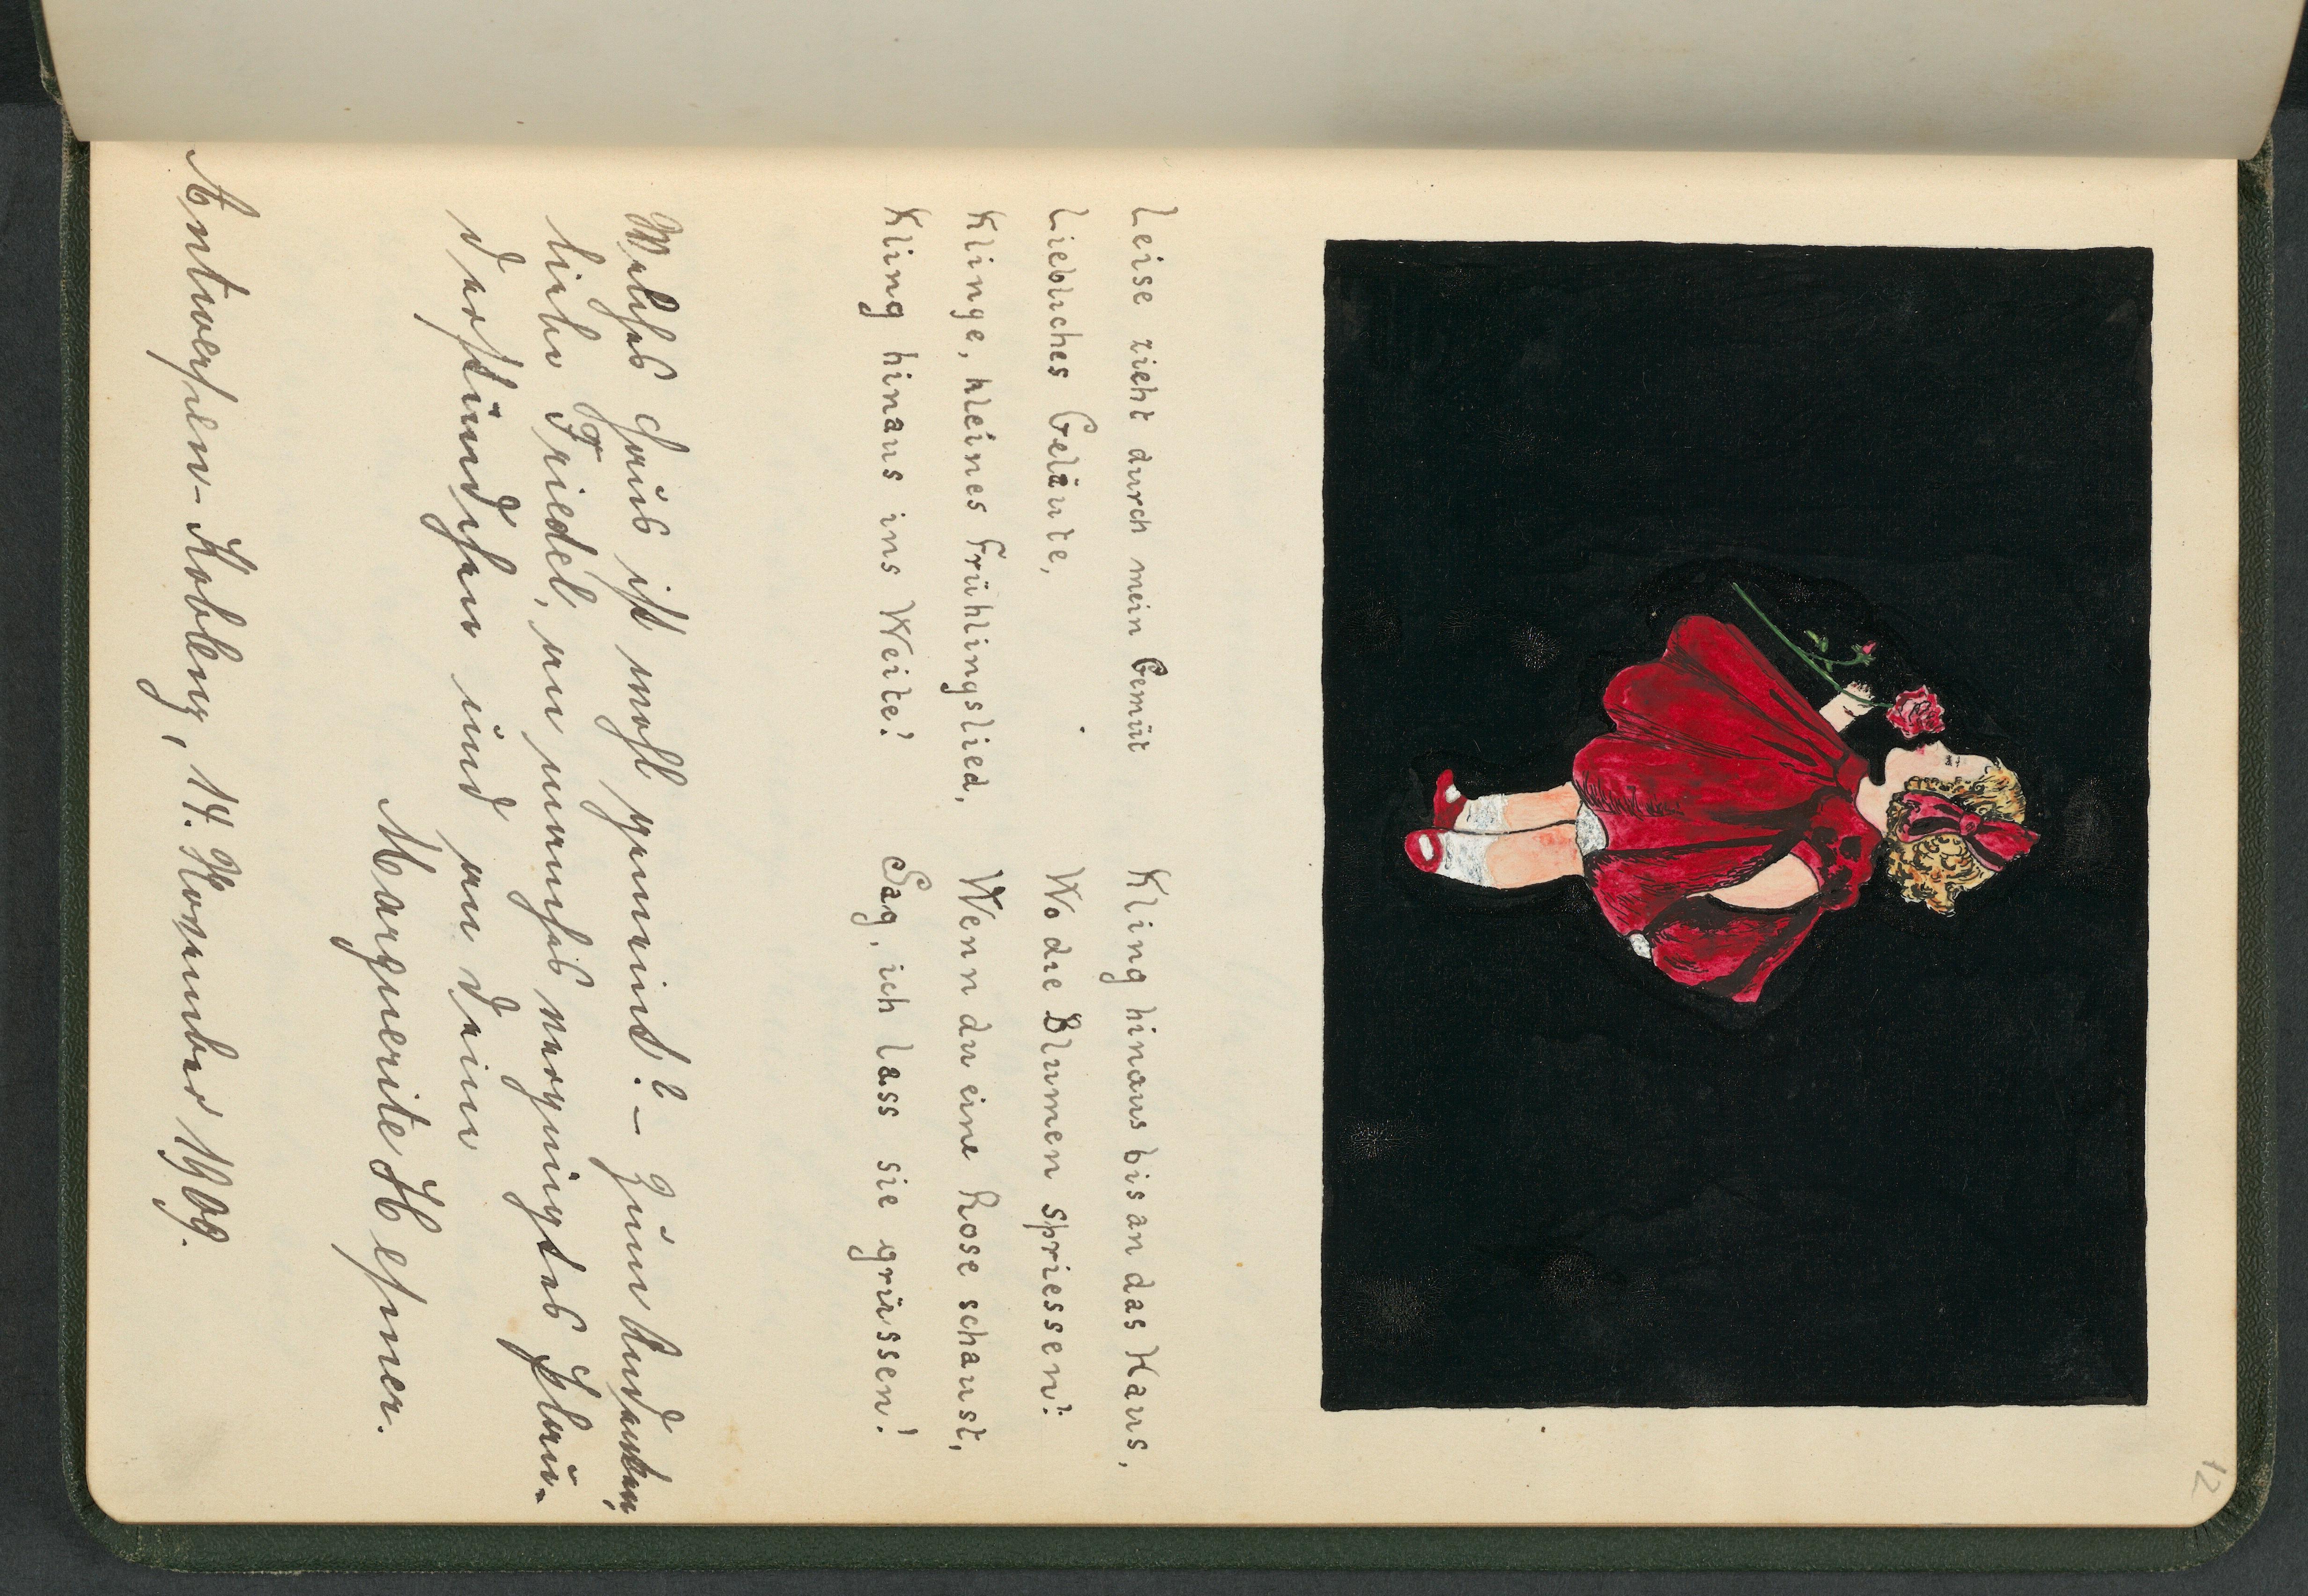 12
Leise zieht durch mein Gemüt
Liebliches Geläute,
Klinge, kleines Frühlingslied,
Kling hinaus ins Weite!
Kling hinaus bis an das Haus,
Wo die Blumen spriessen!
Wenn du eine Rose schaust,
Sag, ich lass sie grüssen!
Welches Haus ist wohl gemeint? – Zum Andenken,
liebe Friedel, an manches vergnügtes Plau-
derstündchen und an deine
Marguerite Hepner.
Antwerpen-Koblenz, 14. November 1909.